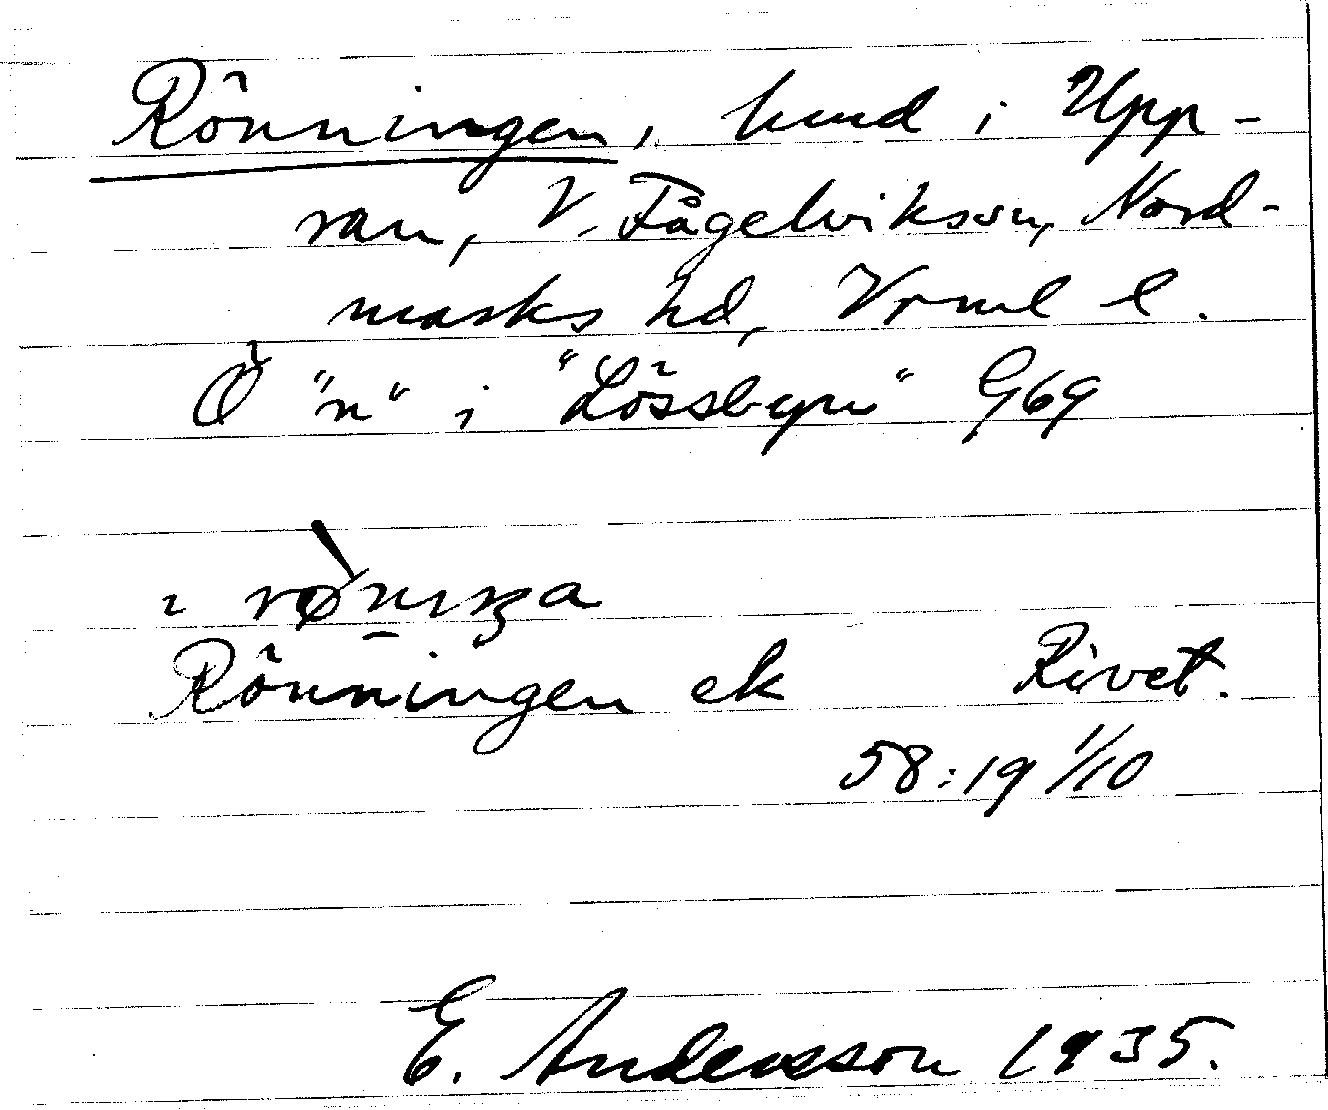 Rönningen, hmd i Upp-
ran, V. Fågelviksn, Nord-
marks hd, Vrml l.
Ö "n" i "Lössbyn" G69
rønıŋa
Rönningen ek Rivet.
58:19 1/10
E. Andersson 1935.